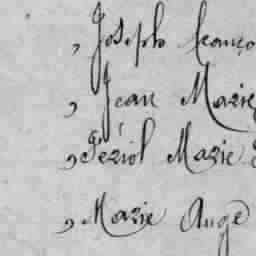 , Joseph franço
, Jean Marie
, Fériol Marie
, Marie Ange